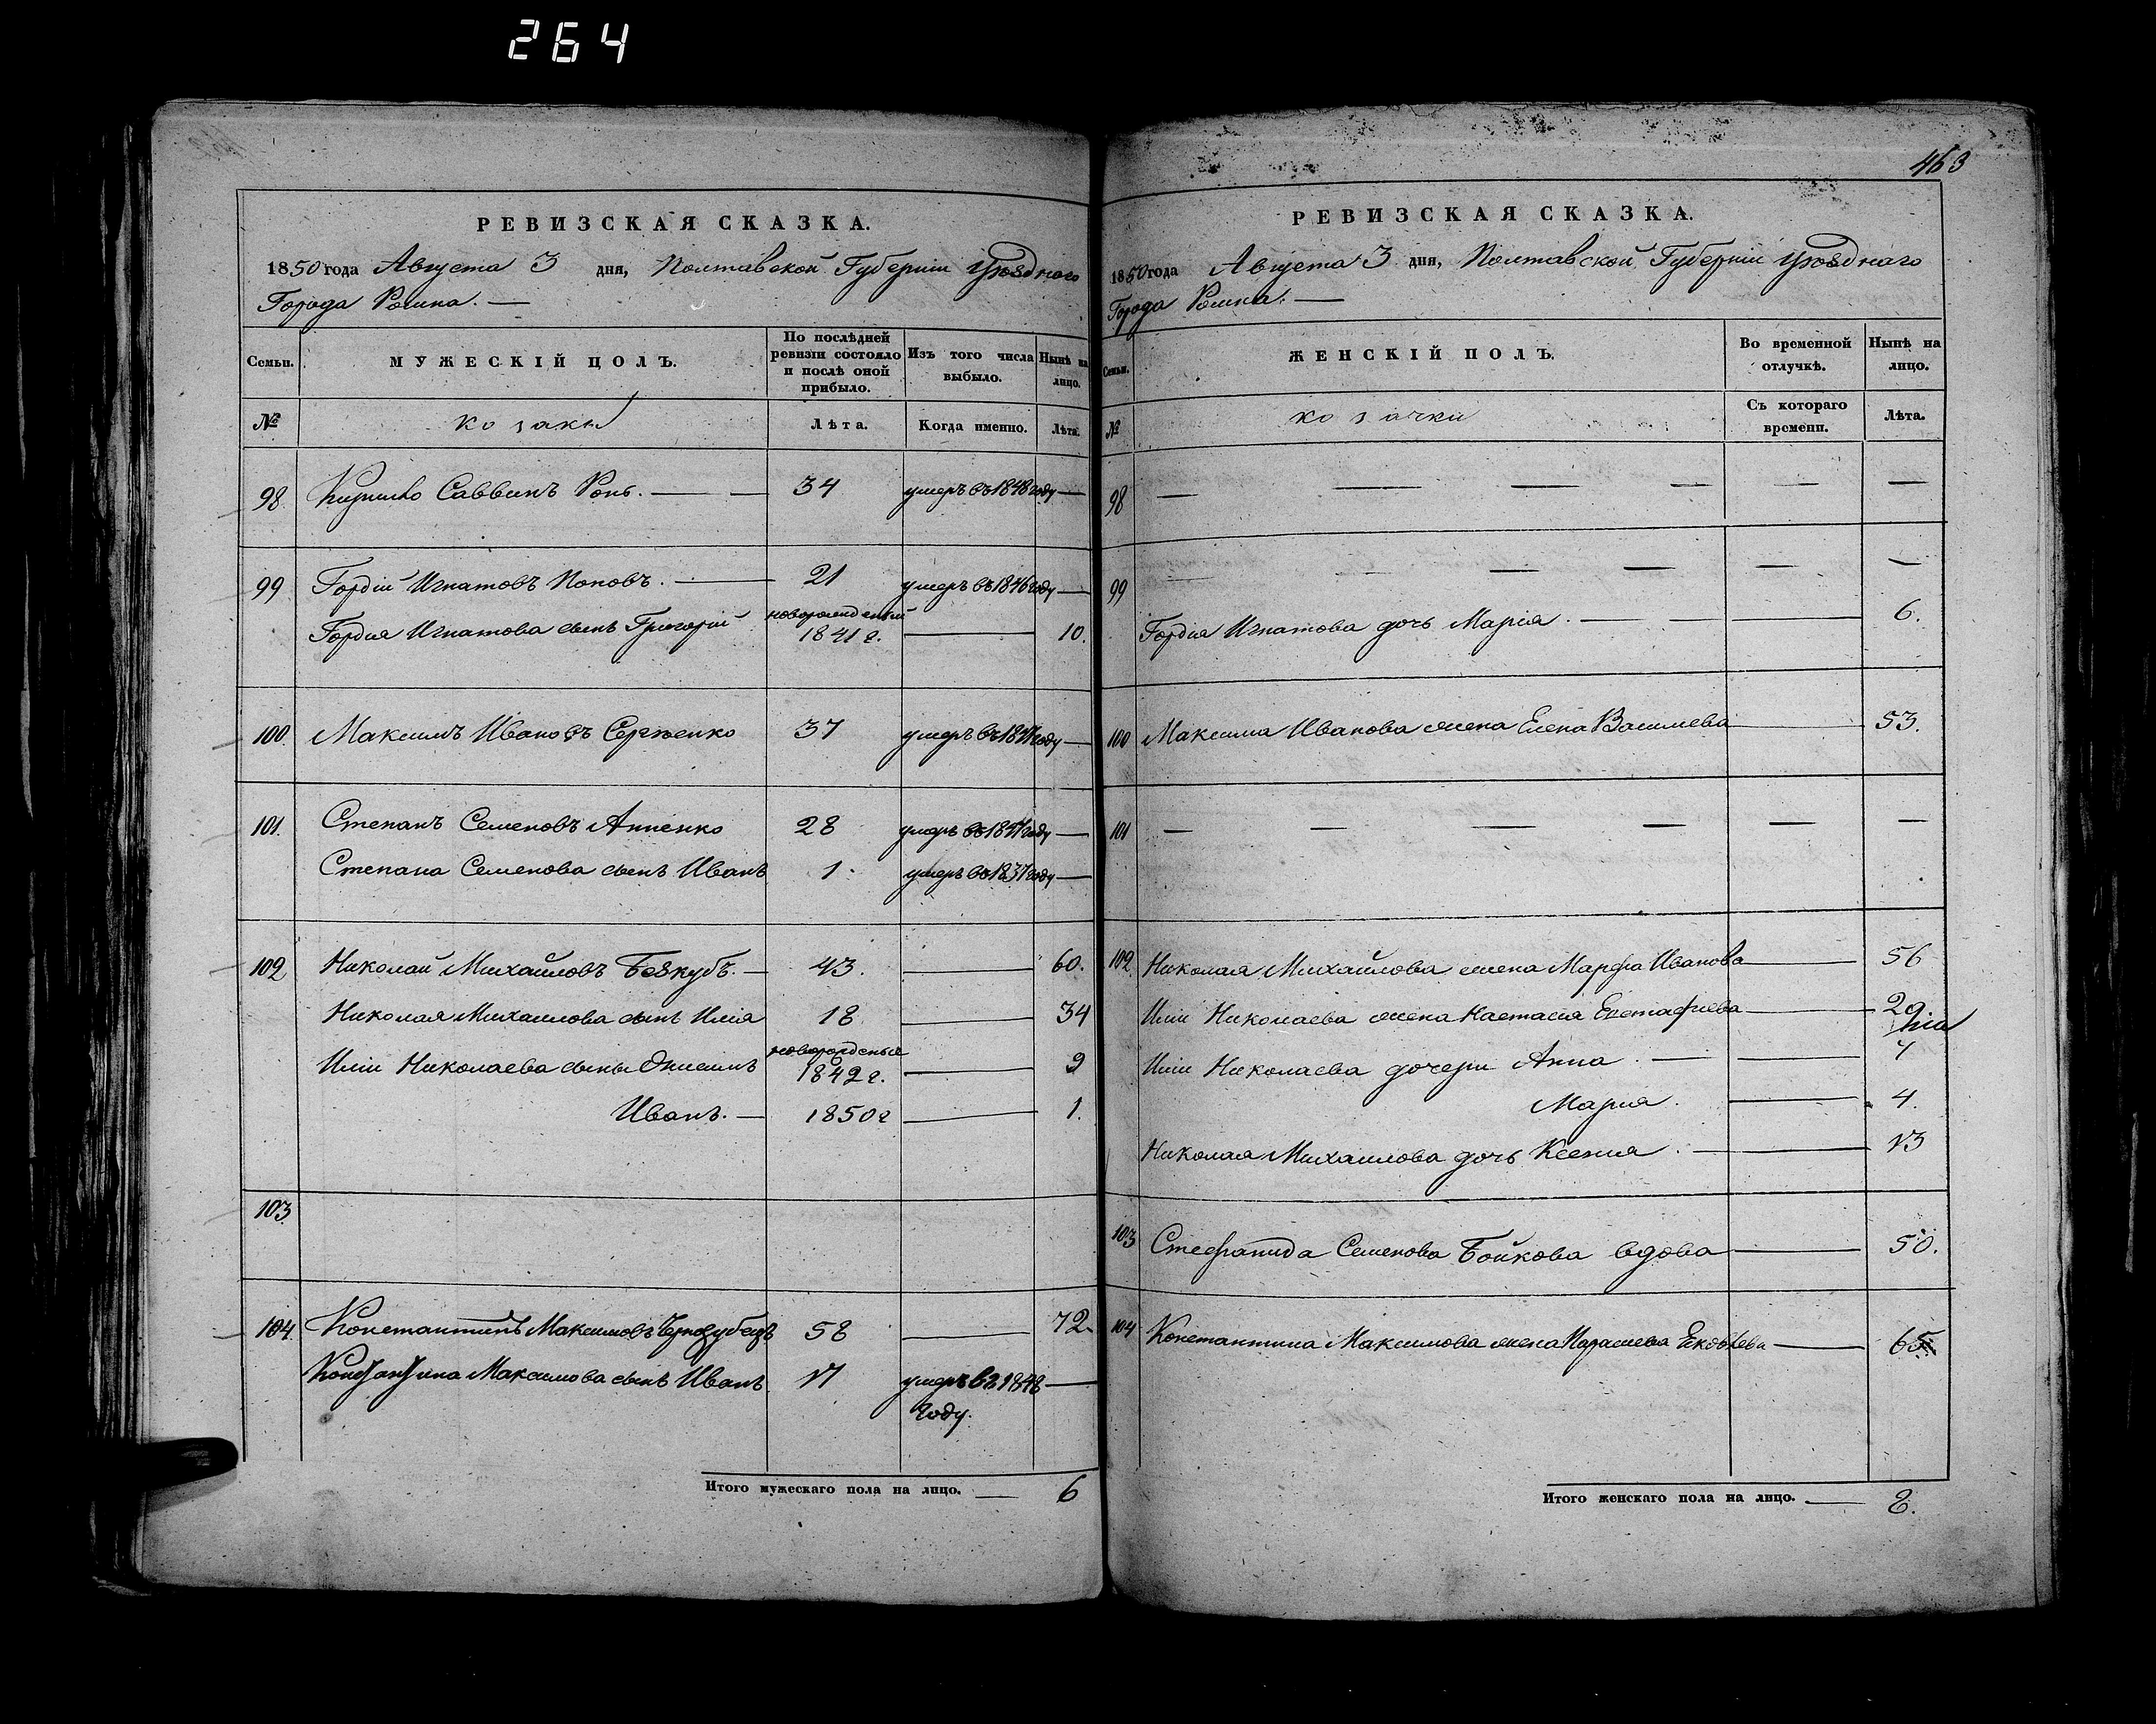 264
463
РЕВИЗСКАЯ СКАЗКА.
1850 года Августа 3 дня, Полтавской Губерніи Уѣзднаго
Города Ромна. —
Семьи. МУЖЕСКІЙ ПОЛЪ. По послѣдней ревизіи состояло и послѣ оной прибыло. Изъ того числа выбыло. Нынѣ на лицо.
№ козаки Лѣта. Когда именно. Лѣта.
98 Саввинъ 34 умеръ въ 1848 году —
99 Гордій Игнатовъ Поповъ. — 21 умеръ въ 1846 году —
Гордія Игнатова сынъ Григорій новорожденный 1841 г. — 10.
100. Максимъ Ивановъ Сергіенко 37 умеръ въ году —
101. Степанъ Семеновъ Анненко 28 умеръ въ году —
Степана Семенова сынъ Иванъ 1 умеръ въ 1837 году —
102 Николай Михайловъ — 43. — 60.
Николая Михаилова сынъ Илія 18 — 34
Иліи Николаева сыны Онисимъ 1842 г. — 9
Иванъ. — 1850 г — 1.
103
104. Константинъ Максимовъ 58 — 72.
Константина Максимова сынъ Иванъ умеръ въ 1848 —
году.
Итого мужескаго пола на лицо. — 6
РЕВИЗСКАЯ СКАЗКА.
1850 года Августа 3 дня, Полтавской Губерніи Уѣзднаго
Города Ромна. —
Семьи. ЖЕНСКІЙ ПОЛЪ. Во временной отлучкѣ. Нынѣ на лицо.
№ козачки Съ котораго времени. Лѣта.
98 — — — — — —
99 — — — — — —
Гордія Игнатова дочь Марія. — — 6.
100 Максима Иванова жена Елена Васильева — 53.
101 — — — — — —
102. Николая Михайлова жена Марфа Иванова — 56
Иліи Николаева жена Настасія Евстафіева — 29
Иліи Николаева дочери Анна — —
Марія. — 4.
Николая Михаилова дочь Ксенія. — 13
103 Стефанида Семенова Бойкова вдова — 50.
104 Константина Максимова жена — 65
Итого женскаго пола на лицо. — 8.